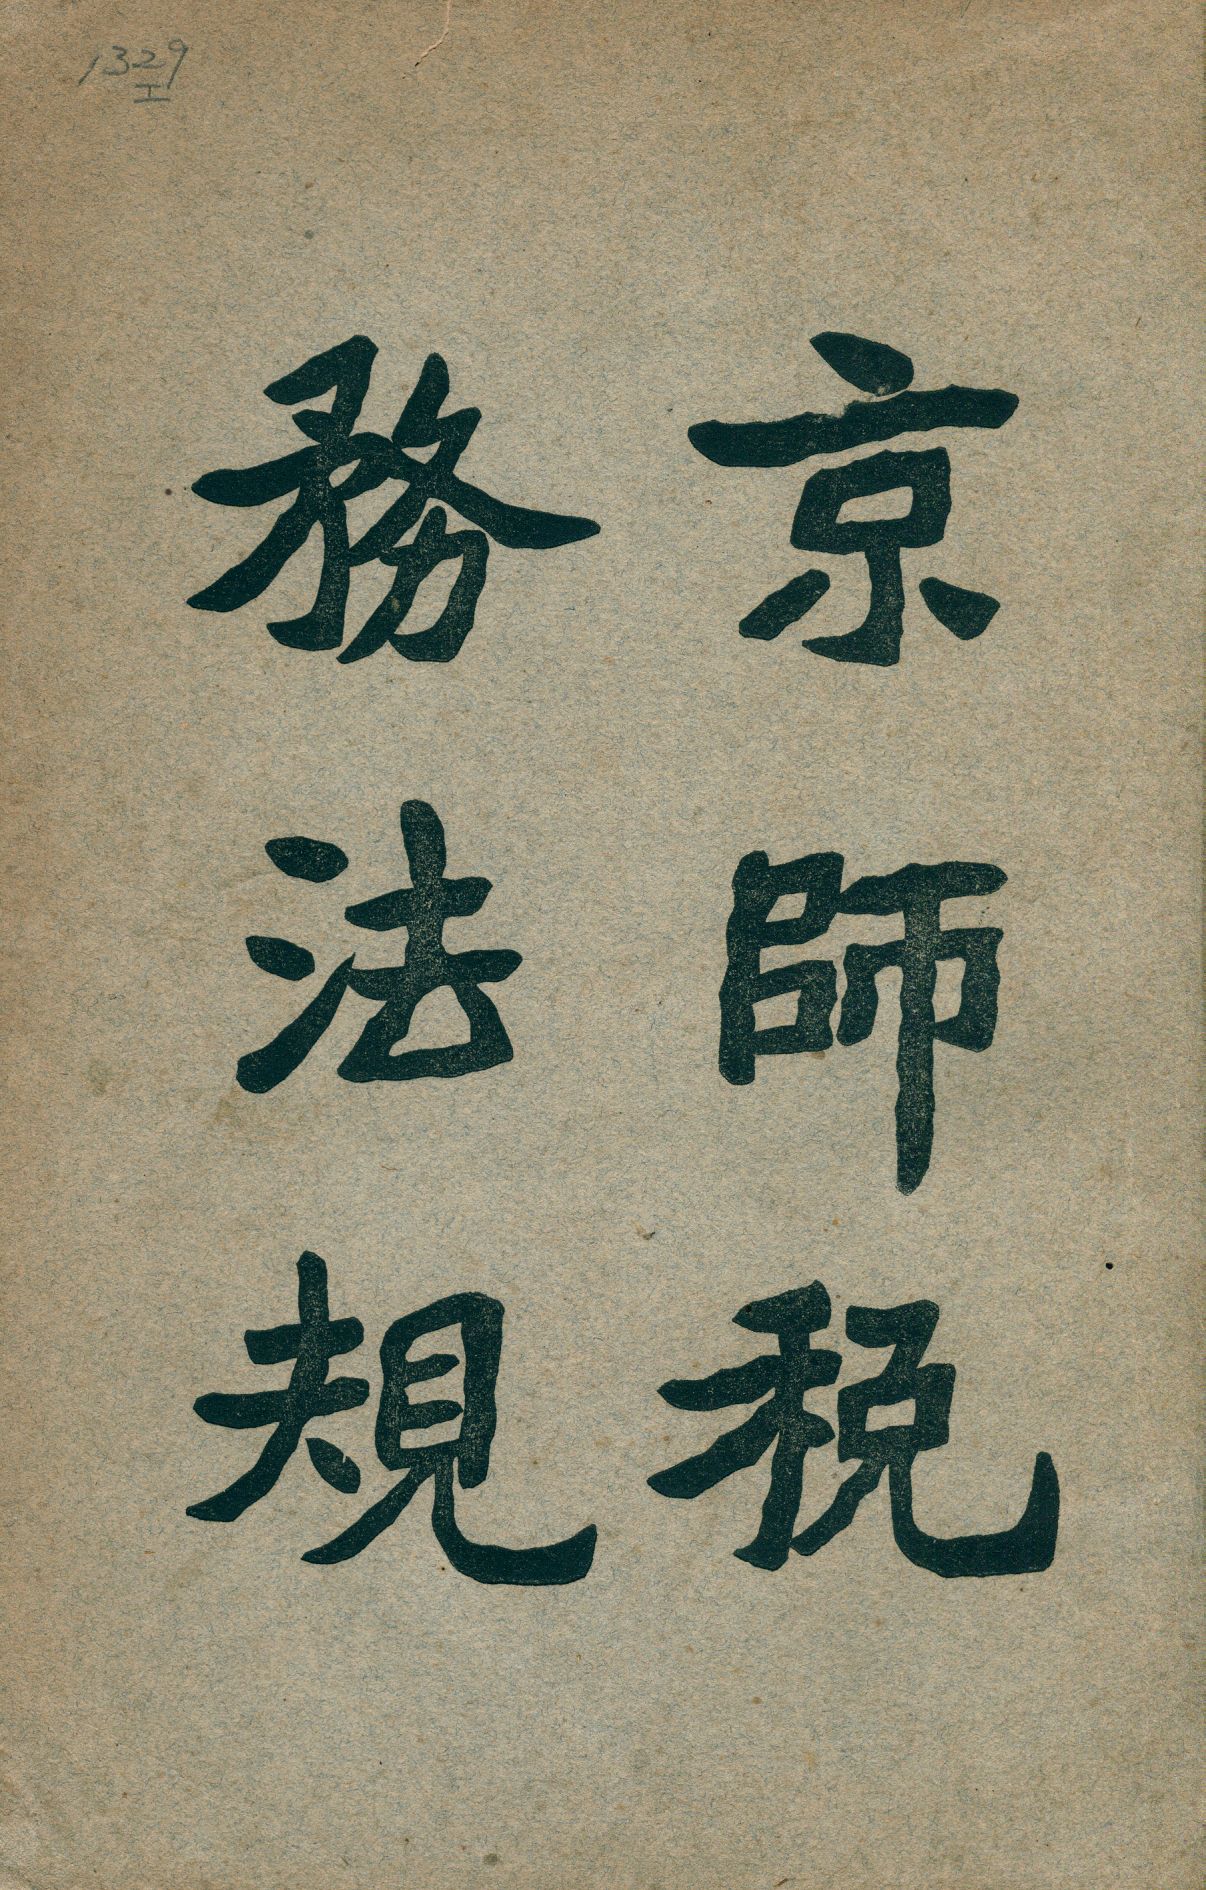 1329
I
京師稅
務法規